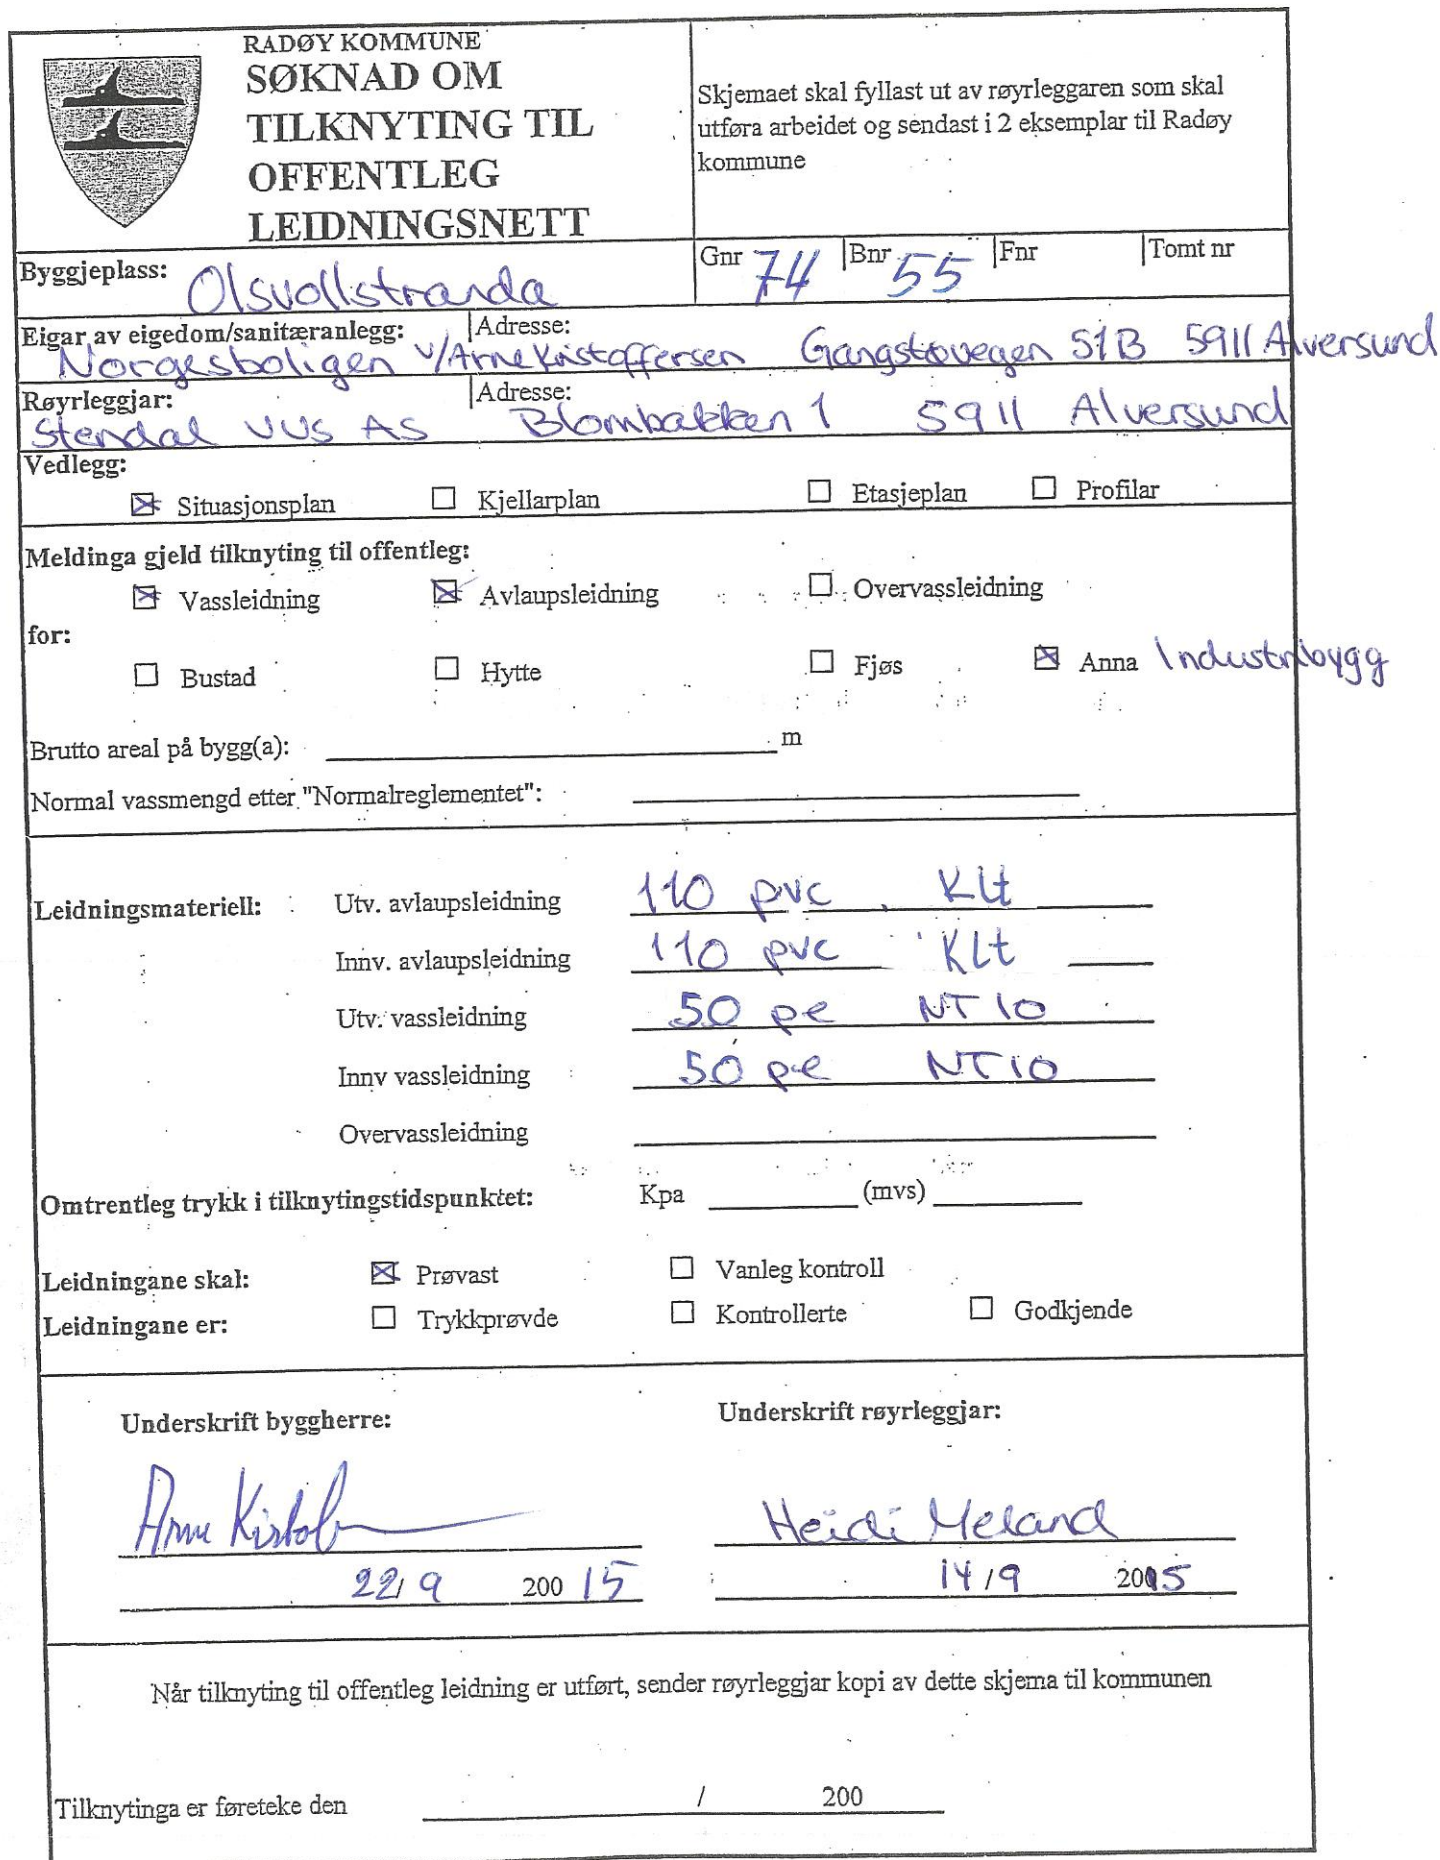 RADØY KOMMUNE
SØKNAD OM
TILKNYTING TIL
OFFENTLEG
LEIDNINGSNETT
Skjemaet skal fyllast ut av røyrleggaren som skal
utføra arbeidet og sendast i 2 eksemplar til Radøy
kommune
Byggjeplass: Olsvollstranda
Gnr 74 Bnr 55 Fnr Tomt nr
Eigar av eigedom/sanitæranlegg: Adresse:
Norgesboligen v/Arne Kristoffersen Gangstøvegen 51B 5911 Alversund
Røyrleggjar: Adresse:
Stendal VVS AS Blombakken 1 5911 Alversund
Vedlegg:
☒ Situasjonsplan ☐ Kjellarplan ☐ Etasjeplan ☐ Profilar
Meldinga gjeld tilknyting til offentleg:
☒ Vassleidning ☒ Avlaupsleidning ☐ Overvassleidning
for:
☐ Bustad ☐ Hytte ☐ Fjøs ☒ Anna Industribygg
Brutto areal på bygg(a): m
Normal vassmengd etter "Normalreglementet":
Leidningsmateriell: Utv. avlaupsleidning 110 pvc Klt
Innv. avlaupsleidning 110 pvc Klt
Utv. vassleidning 50 pe NT 10
Innv vassleidning 50 pe NT 10
Overvassleidning
Omtrentleg trykk i tilknytingstidspunktet: Kpa (mvs)
Leidningane skal: ☒ Prøvast ☐ Vanleg kontroll
Leidningane er: ☐ Trykkprøvde ☐ Kontrollerte ☐ Godkjende
Underskrift byggherre: Underskrift røyrleggjar:
Arne Heidi Meland
22/9 200 15 14/9 2015
Når tilknyting til offentleg leidning er utført, sender røyrleggjar kopi av dette skjema til kommunen
Tilknytinga er føreteke den / 200